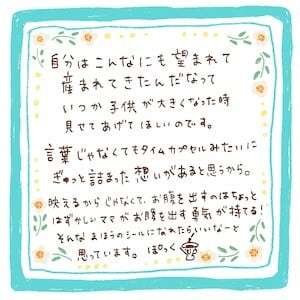 自分はこんなにも望まれて
産まれてきたんだなって
いつか子供が大きくなった時
見せてあげてほしいのです。
言葉じゃなくてもタイムカプセルみたいに
ぎゅっと詰まった想いがあると思うから。
映えるからじゃなくて、お腹を出すのはちょっと
はずかしいママがお腹を出す勇気が持てる!
そんなまほうのシールになれたらいいなーと
思っています。ぽっく